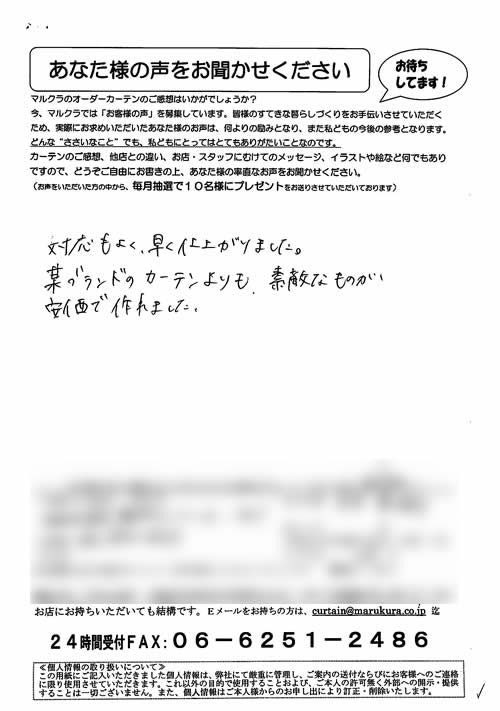 あなた様の声をお聞かせください
お待ち
してます！
マルクラのオーダーカーテンのご感想はいかがでしょうか？
今、マルクラでは「お客様の声」を募集しています。皆様のすてきな暮らしづくりをお手伝いさせていただく
ため、実際にお求めいただいたあなた様のお声は、何よりの励みとなり、また私どもの今後の参考となります。
どんな“ささいなこと”でも、私どもにとってはとてもありがたいことなのです。
カーテンのご感想、他店との違い、お店・スタッフにむけてのメッセージ、イラストや絵など何でもあり
ですので、どうぞご自由にお書きの上、あなた様の率直なお声をお聞かせください。
（お声をいただいた方の中から、毎月抽選で１０名様にプレゼントをお送りさせていただいております）
対応もよく、早く仕上がりました。
某ブランドのカーテンよりも、素敵なものが
安価で作れました。
お店にお持ちいただいても結構です。Ｅメールをお持ちの方は、curtain@marukura.co.jp 迄
２４時間受付ＦＡＸ：０６－６２５１－２４８６
≪個人情報の取り扱いについて≫
この用紙にご記入いただきました個人情報は、弊社にて厳重に管理し、ご案内の送付ならびにお客様へのご連絡
に限り使用させていただきます。これ以外の目的で使用することおよび、ご本人の許可無く外部への開示・提供
することは一切ございません。また、個人情報はご本人様からのお申し出により訂正・削除いたします。